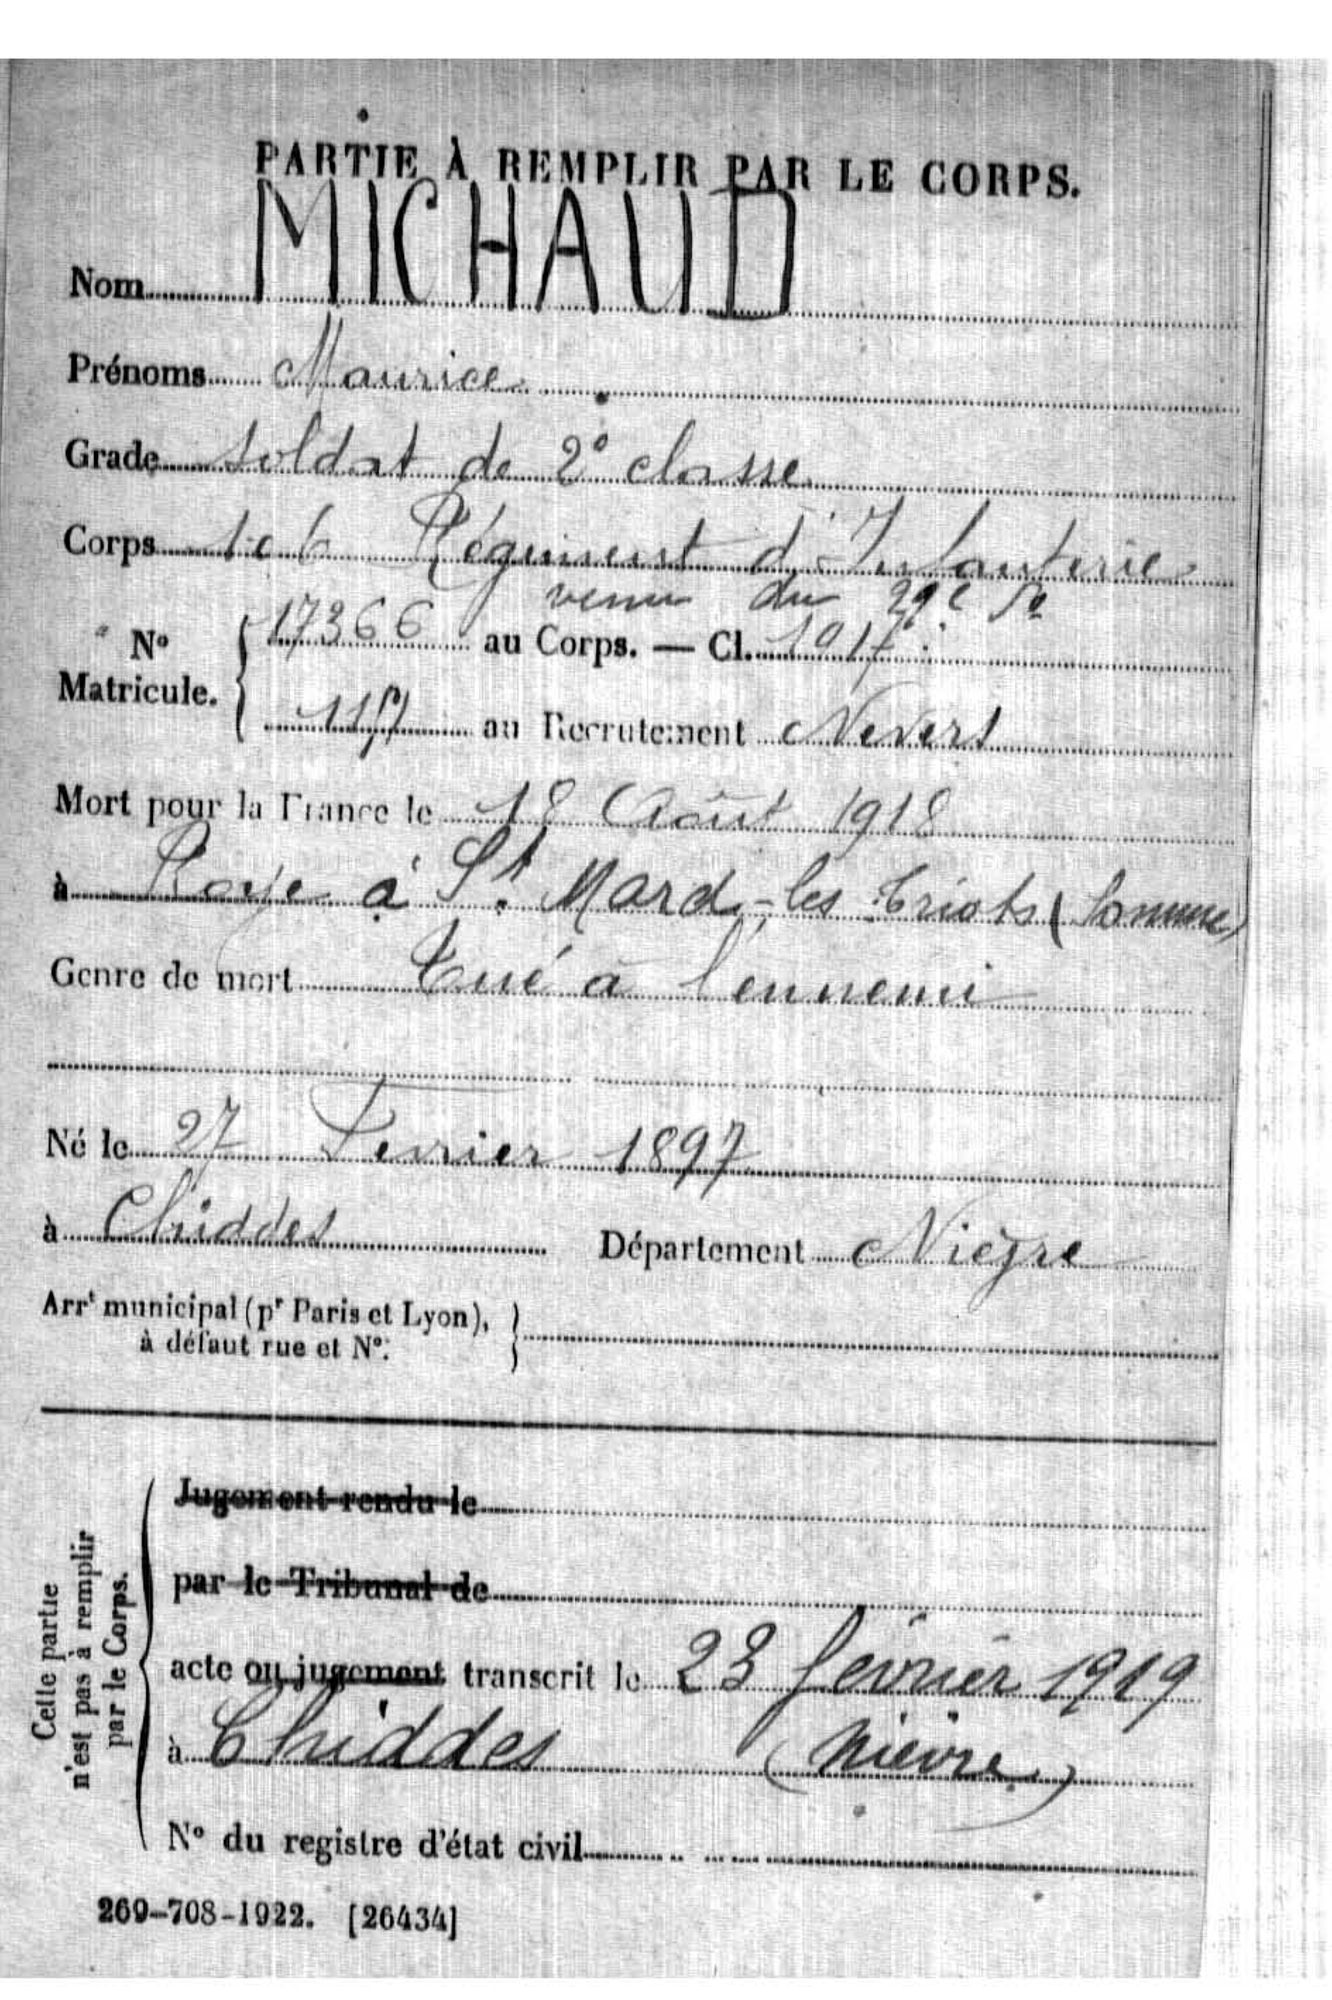 PARTIE À REMPLIR PAR LE CORPS.
Nom MICHAUD
Prénoms Maurice
Grade Soldat de 2e classe
Corps 106 Régiment d'Infanterie
venu du 29e
No Matricule. 17366 au Corps. — Cl. 1917
au Recrutement Nevers
Mort pour la France le 18 Août 1918
à Roye à St. Mard-les-Triots (Somme)
Genre de mort Tué à l'ennemi
Né le 27 Fevrier 1897
à Chiddes Département Nièvre
Arrt municipal (pr Paris et Lyon),
à défaut rue et No.
Cette partie
n'est pas à remplir
par le Corps.
Jugement rendu le
par le Tribunal de
acte ou jugement transcrit le 23 février 1919
à Chiddes (Nièvre)
No du registre d'état civil
269-708-1922. [26434]